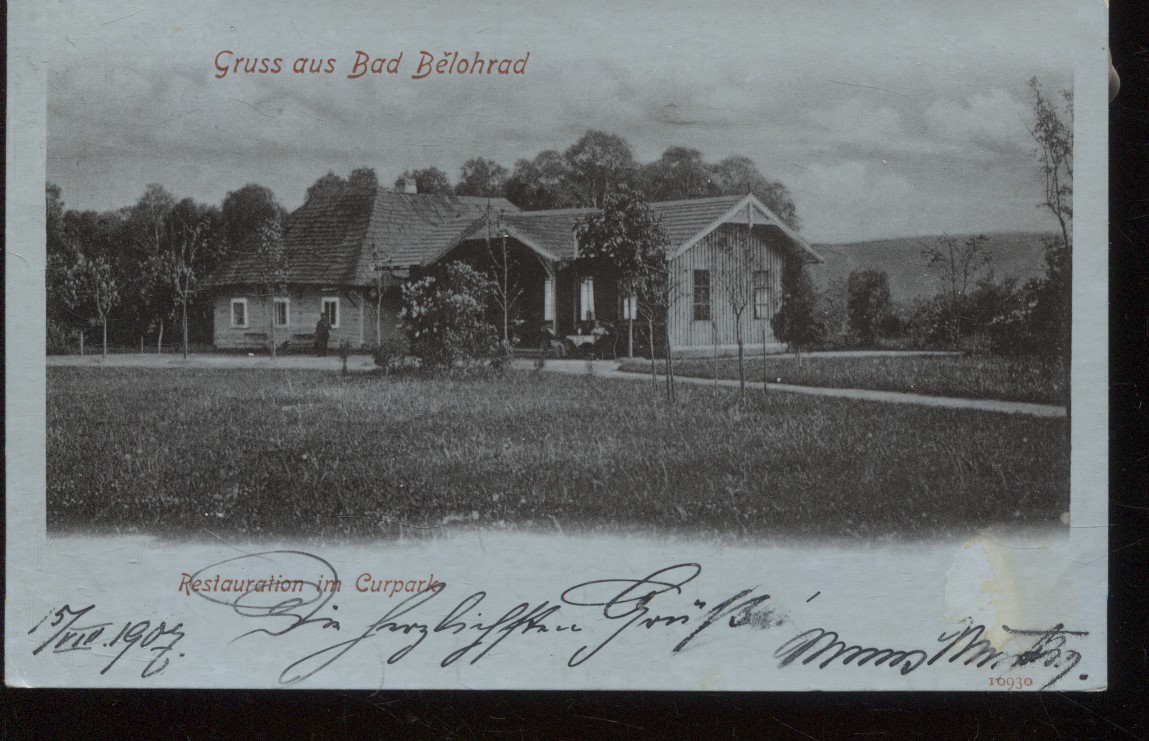 Gruss aus Bad Bělohrad
Restauration im Curpark
Die herzlichsten Grüße
10930